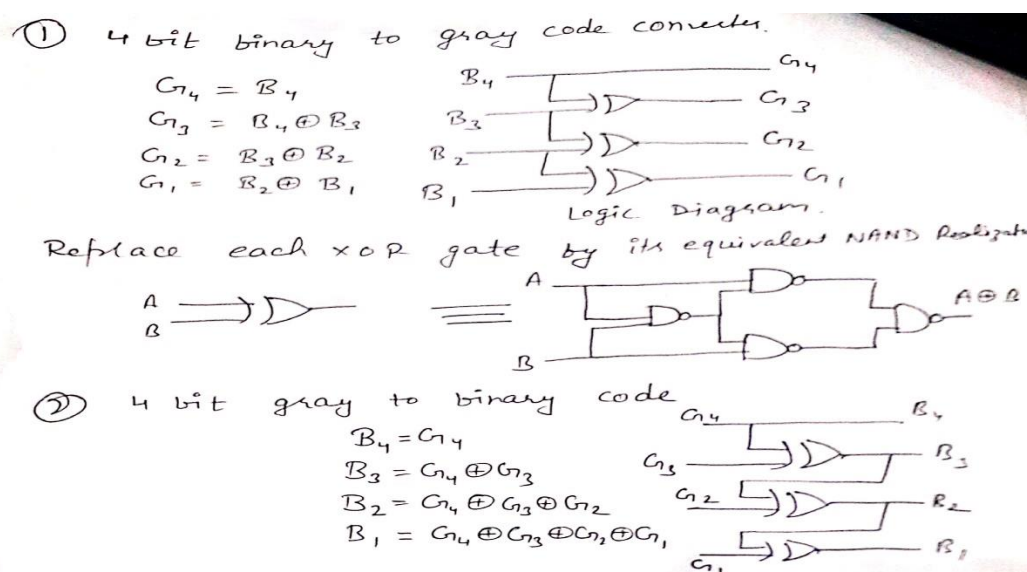 ① 4 bit binary to gray code converter.
G₄ = B₄
G₃ = B₄ ⊕ B₃
G₂ = B₃ ⊕ B₂
G₁ = B₂ ⊕ B₁
B₄ G₄
B₃ G₃
B₂ G₂
B₁ G₁
Logic Diagram.
Replace each XOR gate by its equivalent NAND
A
B
A
B
A⊕B
② 4 bit gray to binary code
B₄ = G₄
B₃ = G₄ ⊕ G₃
B₂ = G₄ ⊕ G₃ ⊕ G₂
B₁ = G₄ ⊕ G₃ ⊕ G₂ ⊕ G₁
G₄ B₄
G₃ B₃
G₂ B₂
G₁ B₁